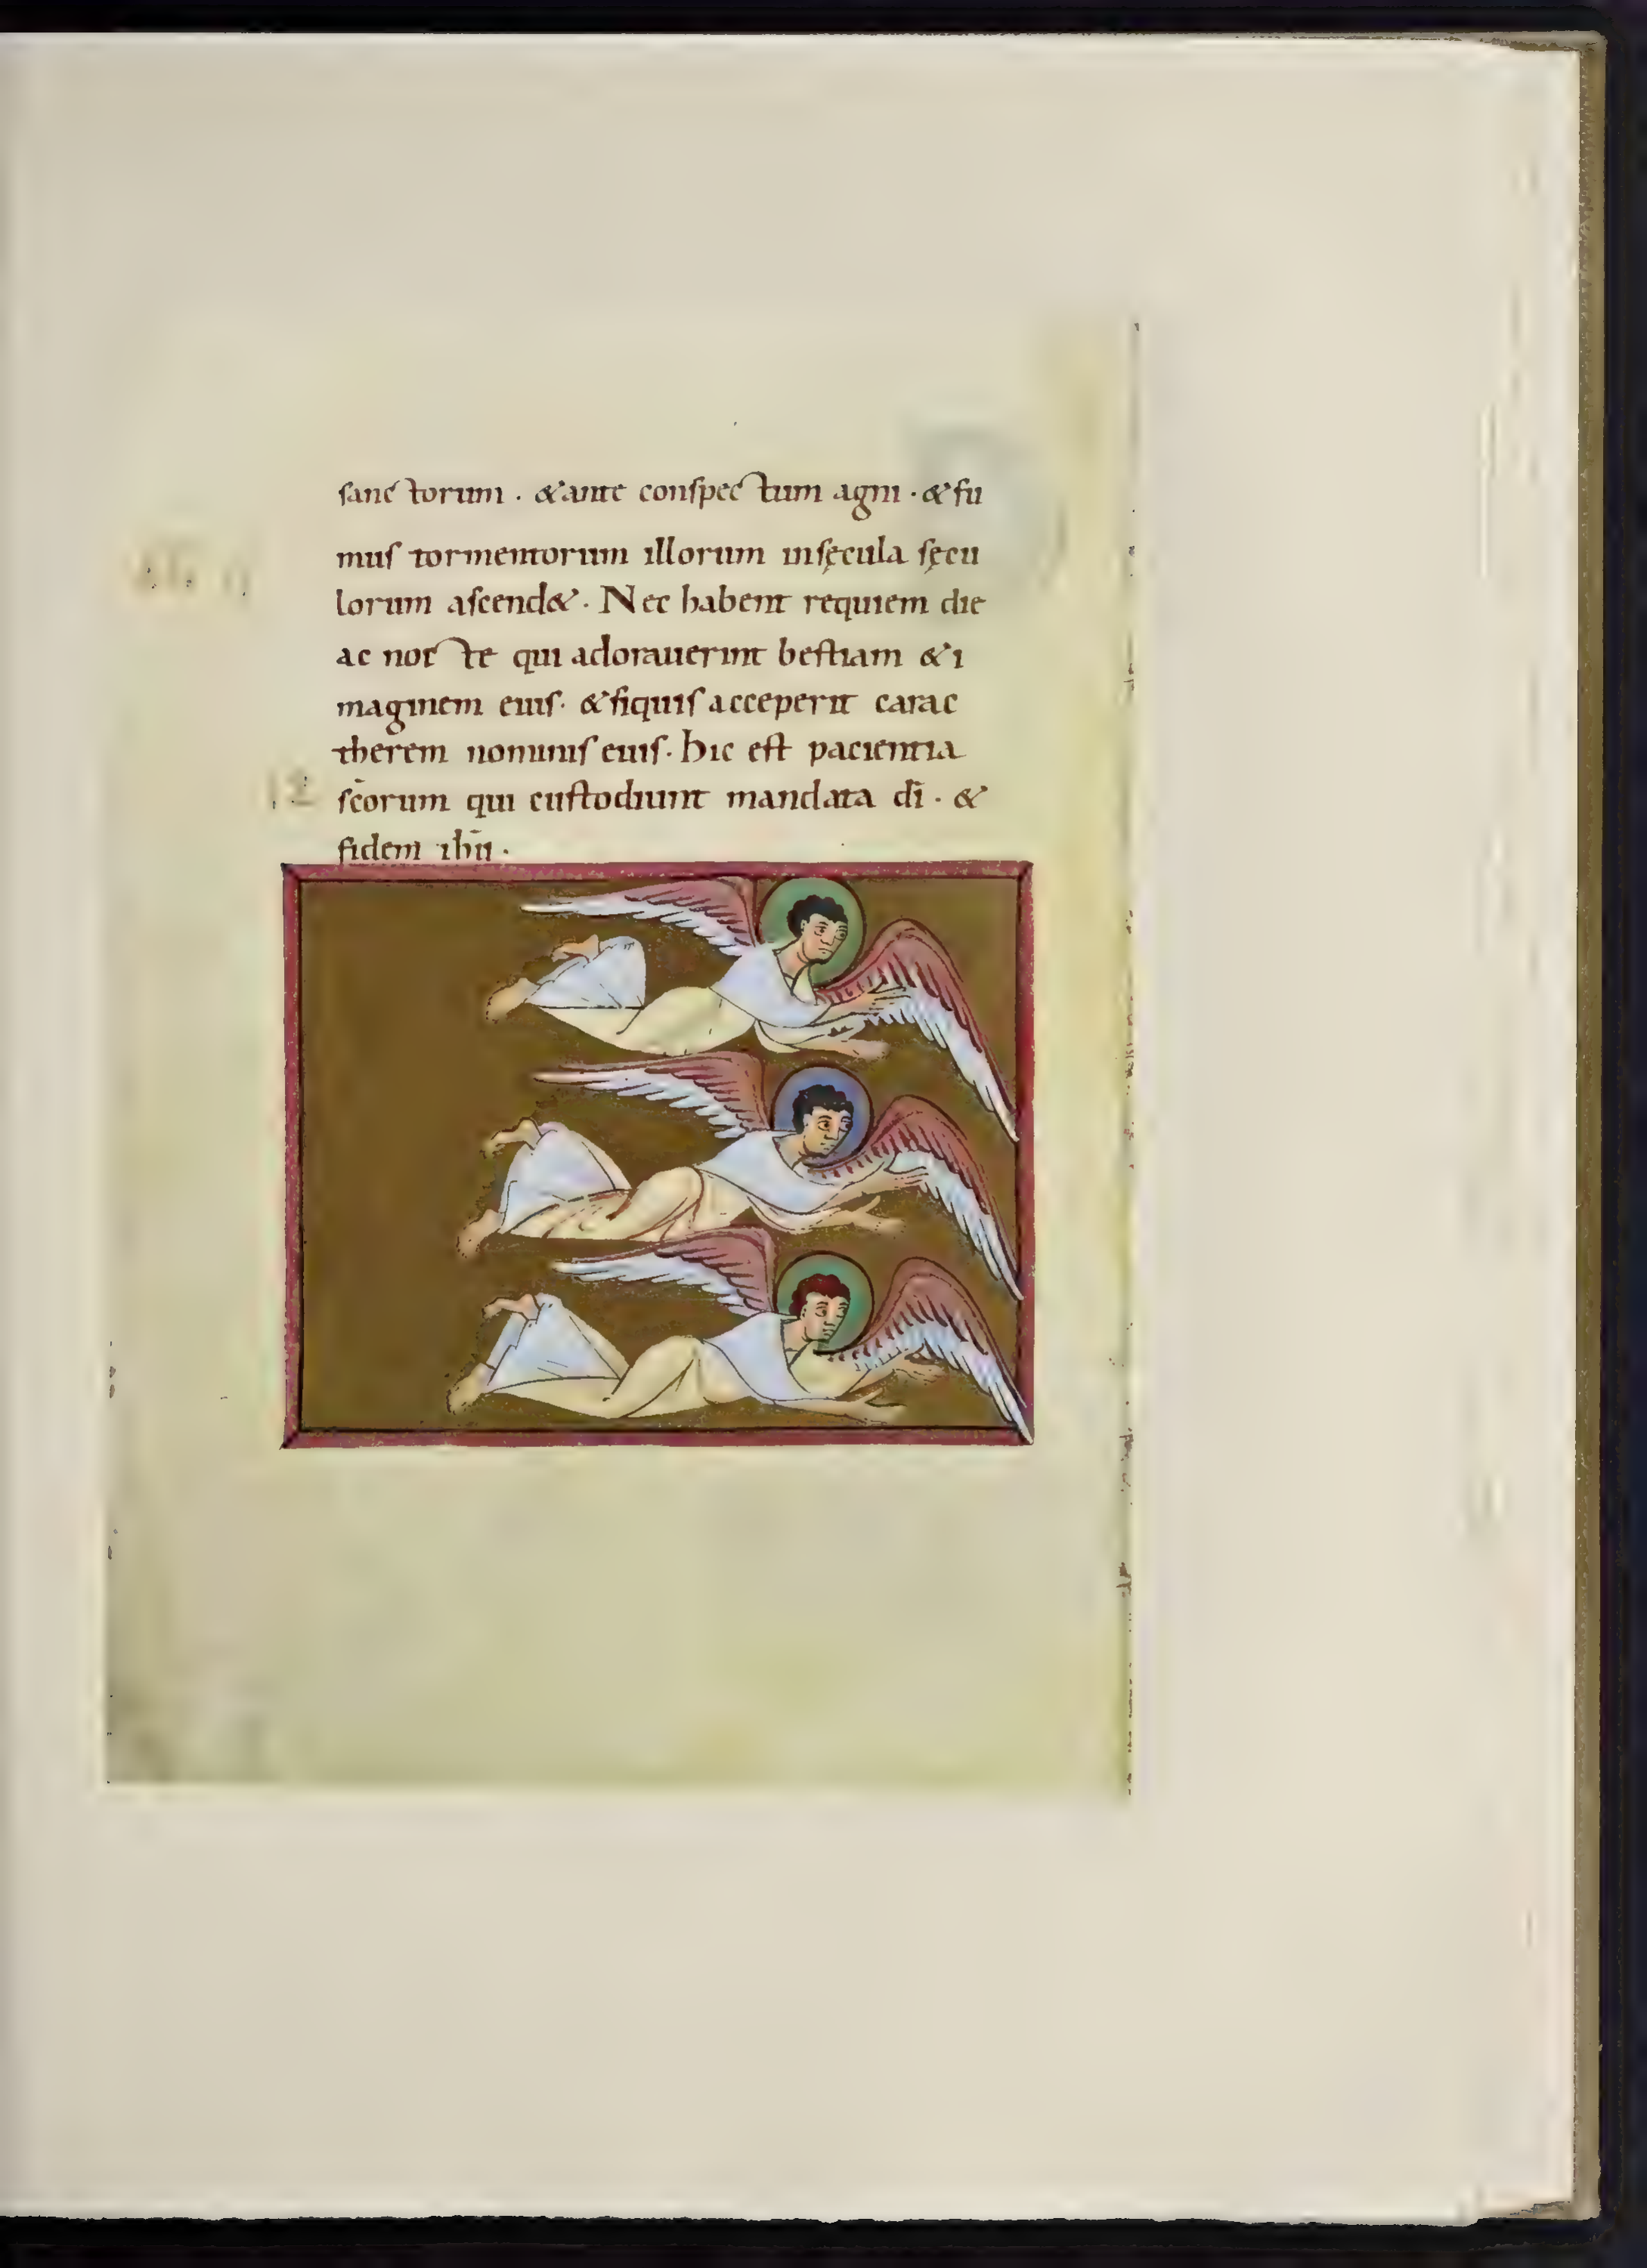 sanctorum · &ante conspectum agni · &fu
mus tormentorum illorum insęcula sęcu
lorum ascend& · Nec habent requiem die
ac nocte qui adorauerint bestiam &i
maginem eius · &siquis acceperit carac
therem nominis eius · hic est pacientia
sc̄orum qui custodiunt mandata dī · &
fidem ihū ·